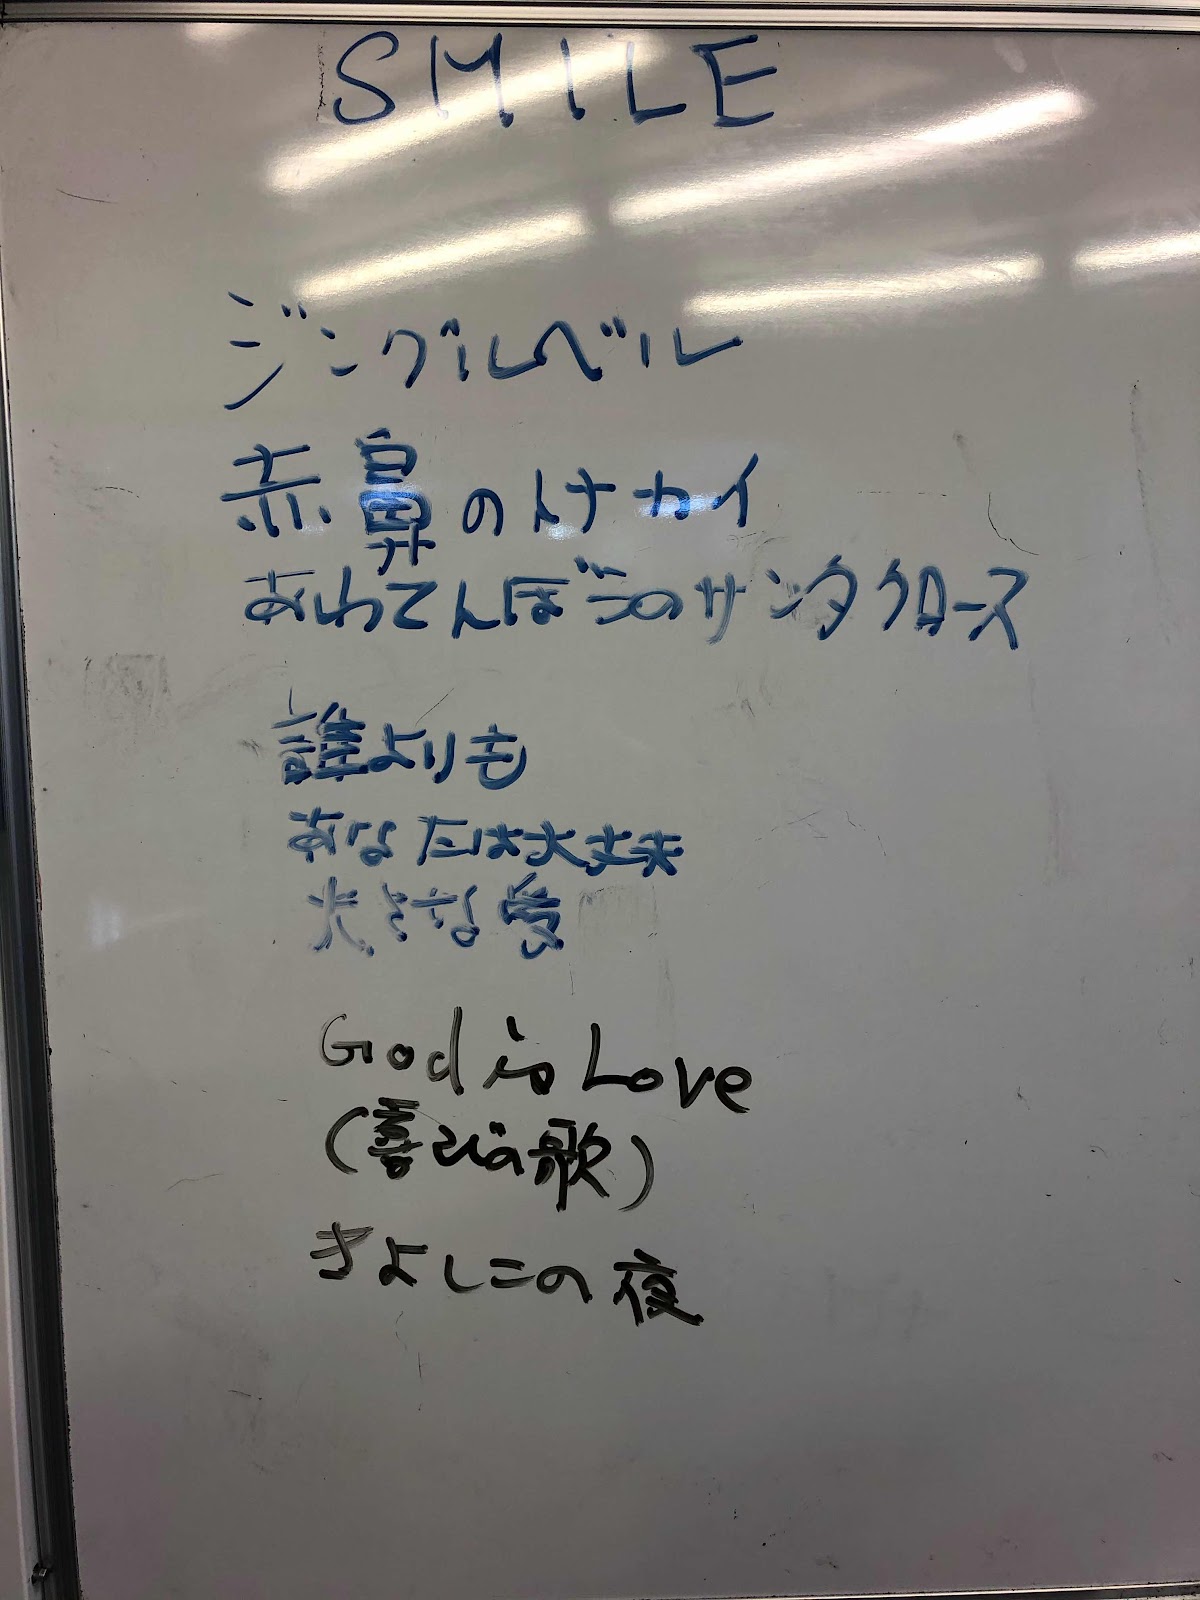 SMILE
ジングルベル
赤鼻のトナカイ
あわてんぼうのサンタクロース
誰よりも
あなたは大丈夫
大きな愛
God is Love
(喜びの歌)
きよしこの夜